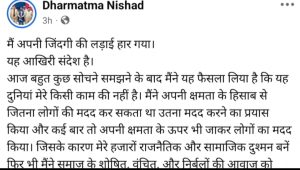 Dharmatma Nishad
3h
मैं अपनी जिंदगी की लड़ाई हार गया।
यह आखिरी संदेश है।
आज बहुत कुछ सोचने समझने के बाद मैंने यह फैसला लिया है कि यह
दुनियां मेरे किसी काम की नहीं है। मैंने अपनी क्षमता के हिसाब से
जितना लोगों की मदद कर सकता था उतना मदद करने का प्रयास
किया और कई बार तो अपनी क्षमता के ऊपर भी जाकर लोगों का मदद
किया। जिसके कारण मेरे हजारों राजनैतिक और सामाजिक दुश्मन बनें
फिर भी मैंने समाज के शोषित, वंचित, और निर्बलों की आवाज को